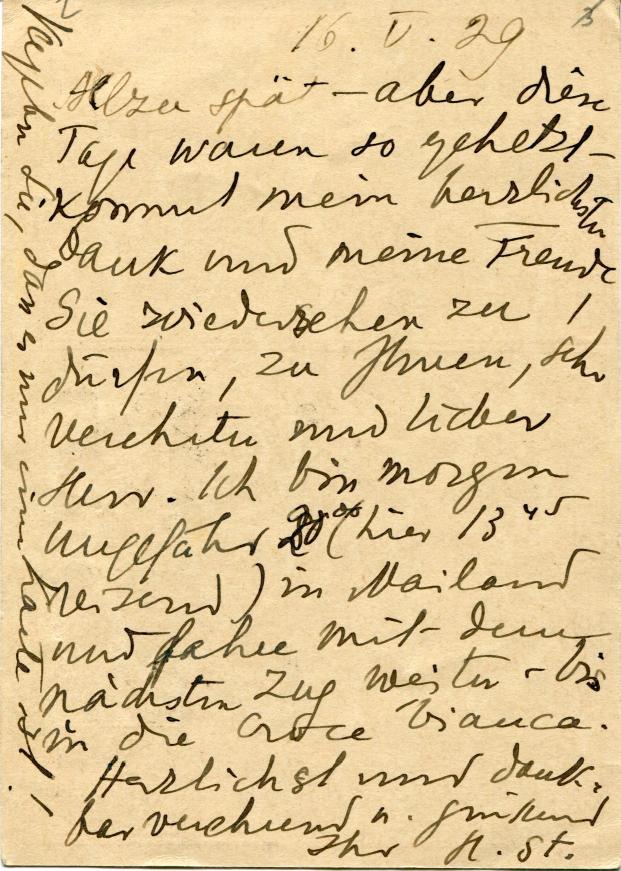 16. V. 29
Allzu spät – aber diese
Tage waren so gehetzt –
kommt mein herzlichster
Dank und meine Freude
Sie wiedersehen zu
dürfen, zu Ihnen, sehr
verehrter und lieber
Herr. Ich bin morgen
ungefähr (hier 13 45
reisend) in Mailand
und fahre mit dem
nächsten Zug weiter – bis
in die Croce bianca.
Herzlichst und dank-
bar verehrend u. grüßend
Ihr H. St.
Sie, daß es nur eine Karte ist!